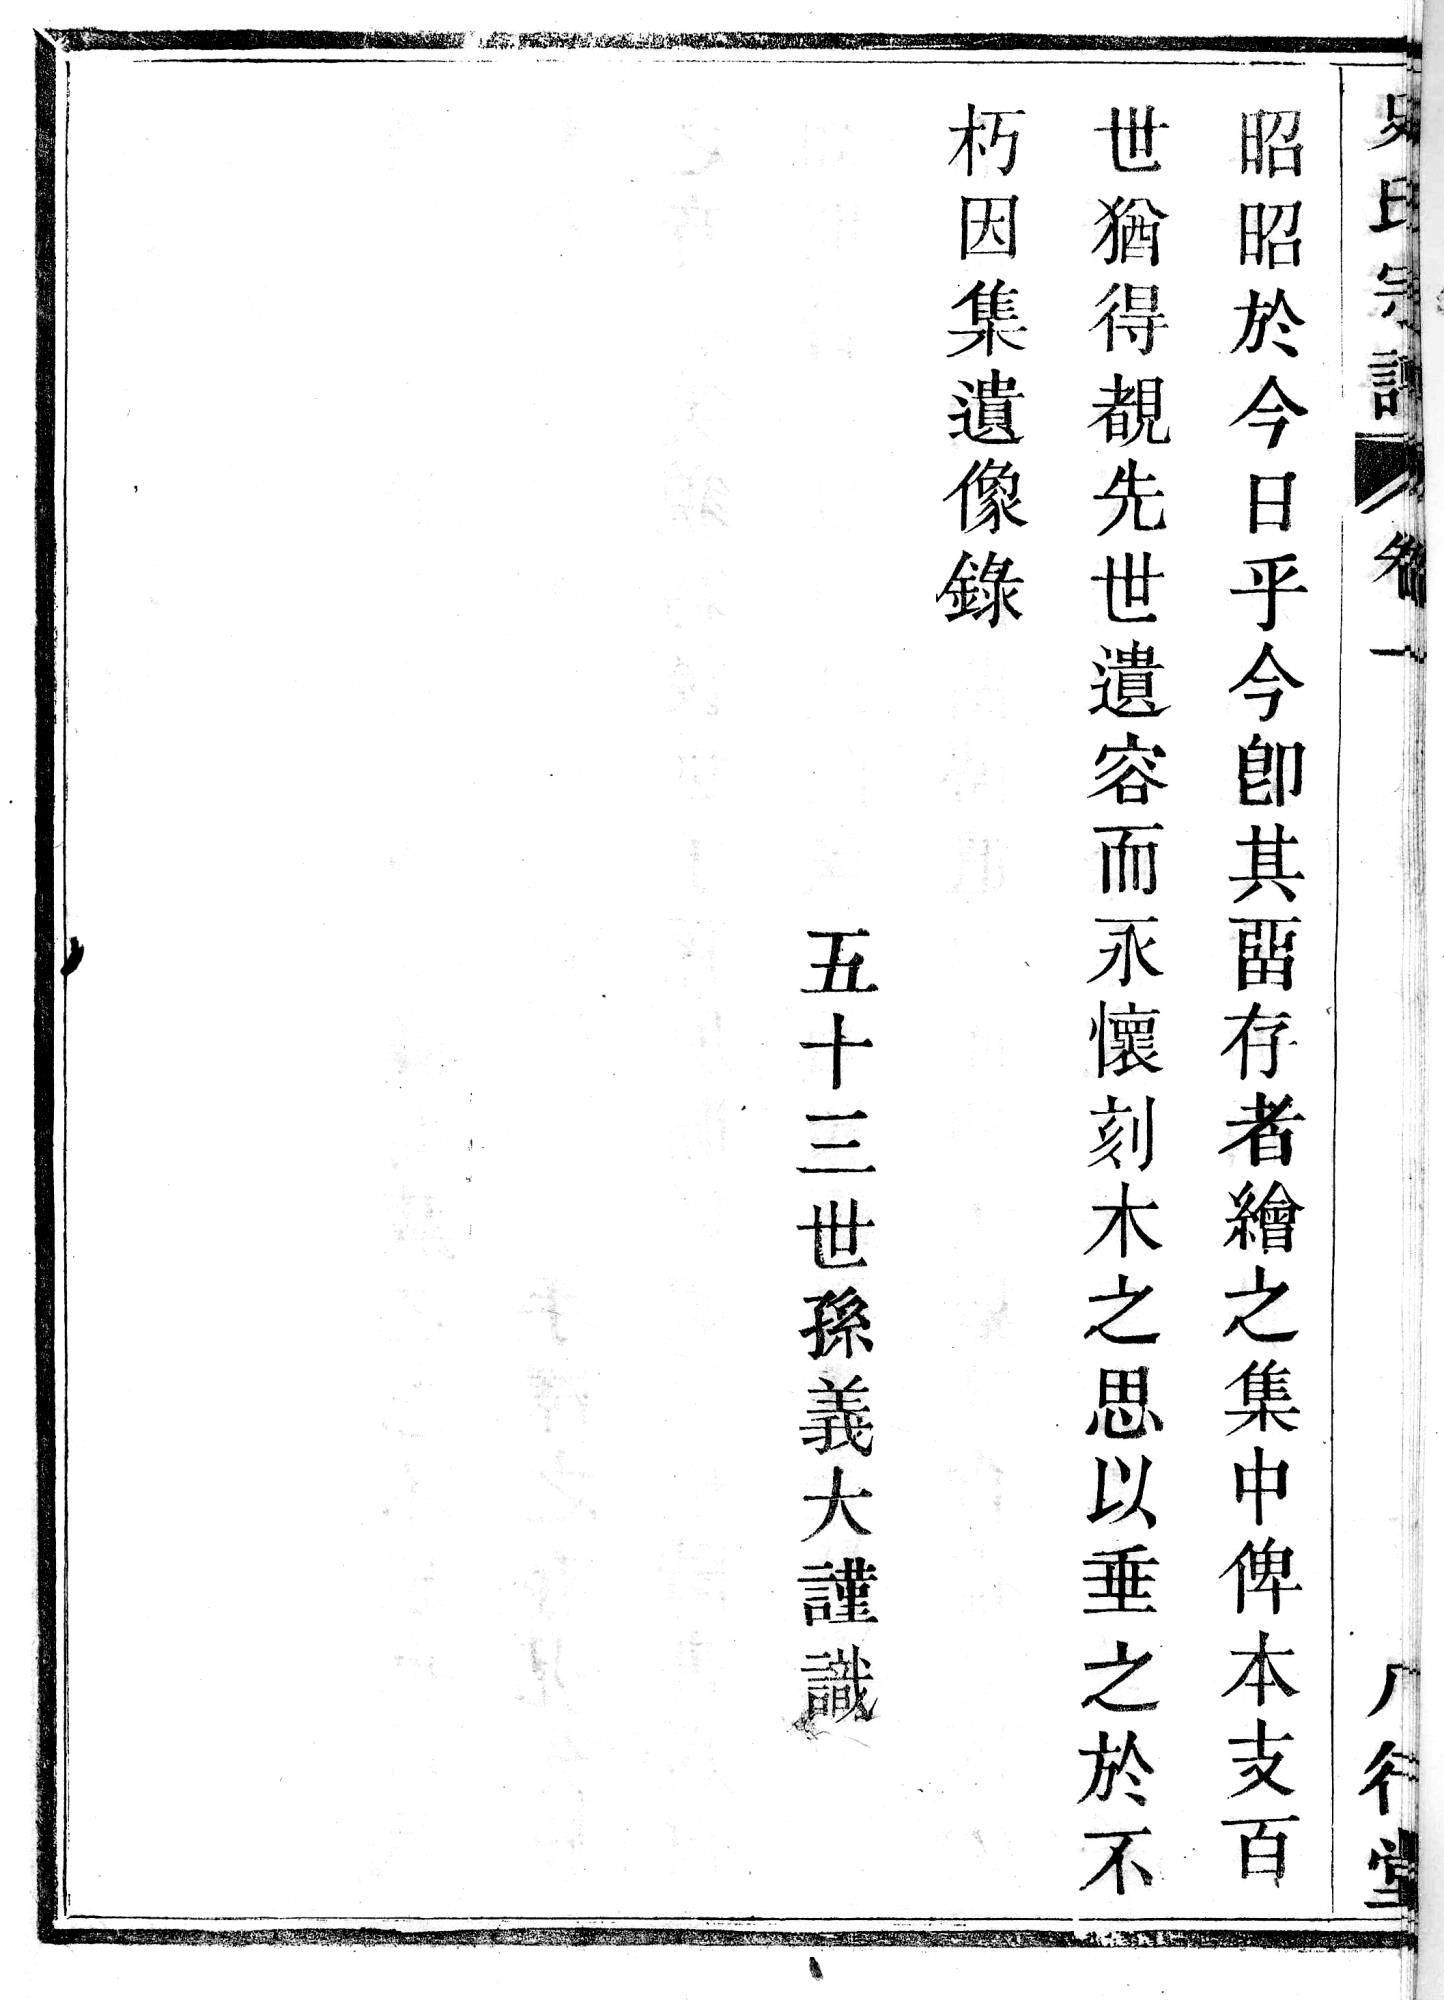 昭昭於今日乎今卽其畱存者繪之集中俾本支百
世猶得覩先世遺容而永懷刻木之思以垂之於不
朽因集遺像錄
五十三世孫義大謹識
氏宗譜
卷一
行堂